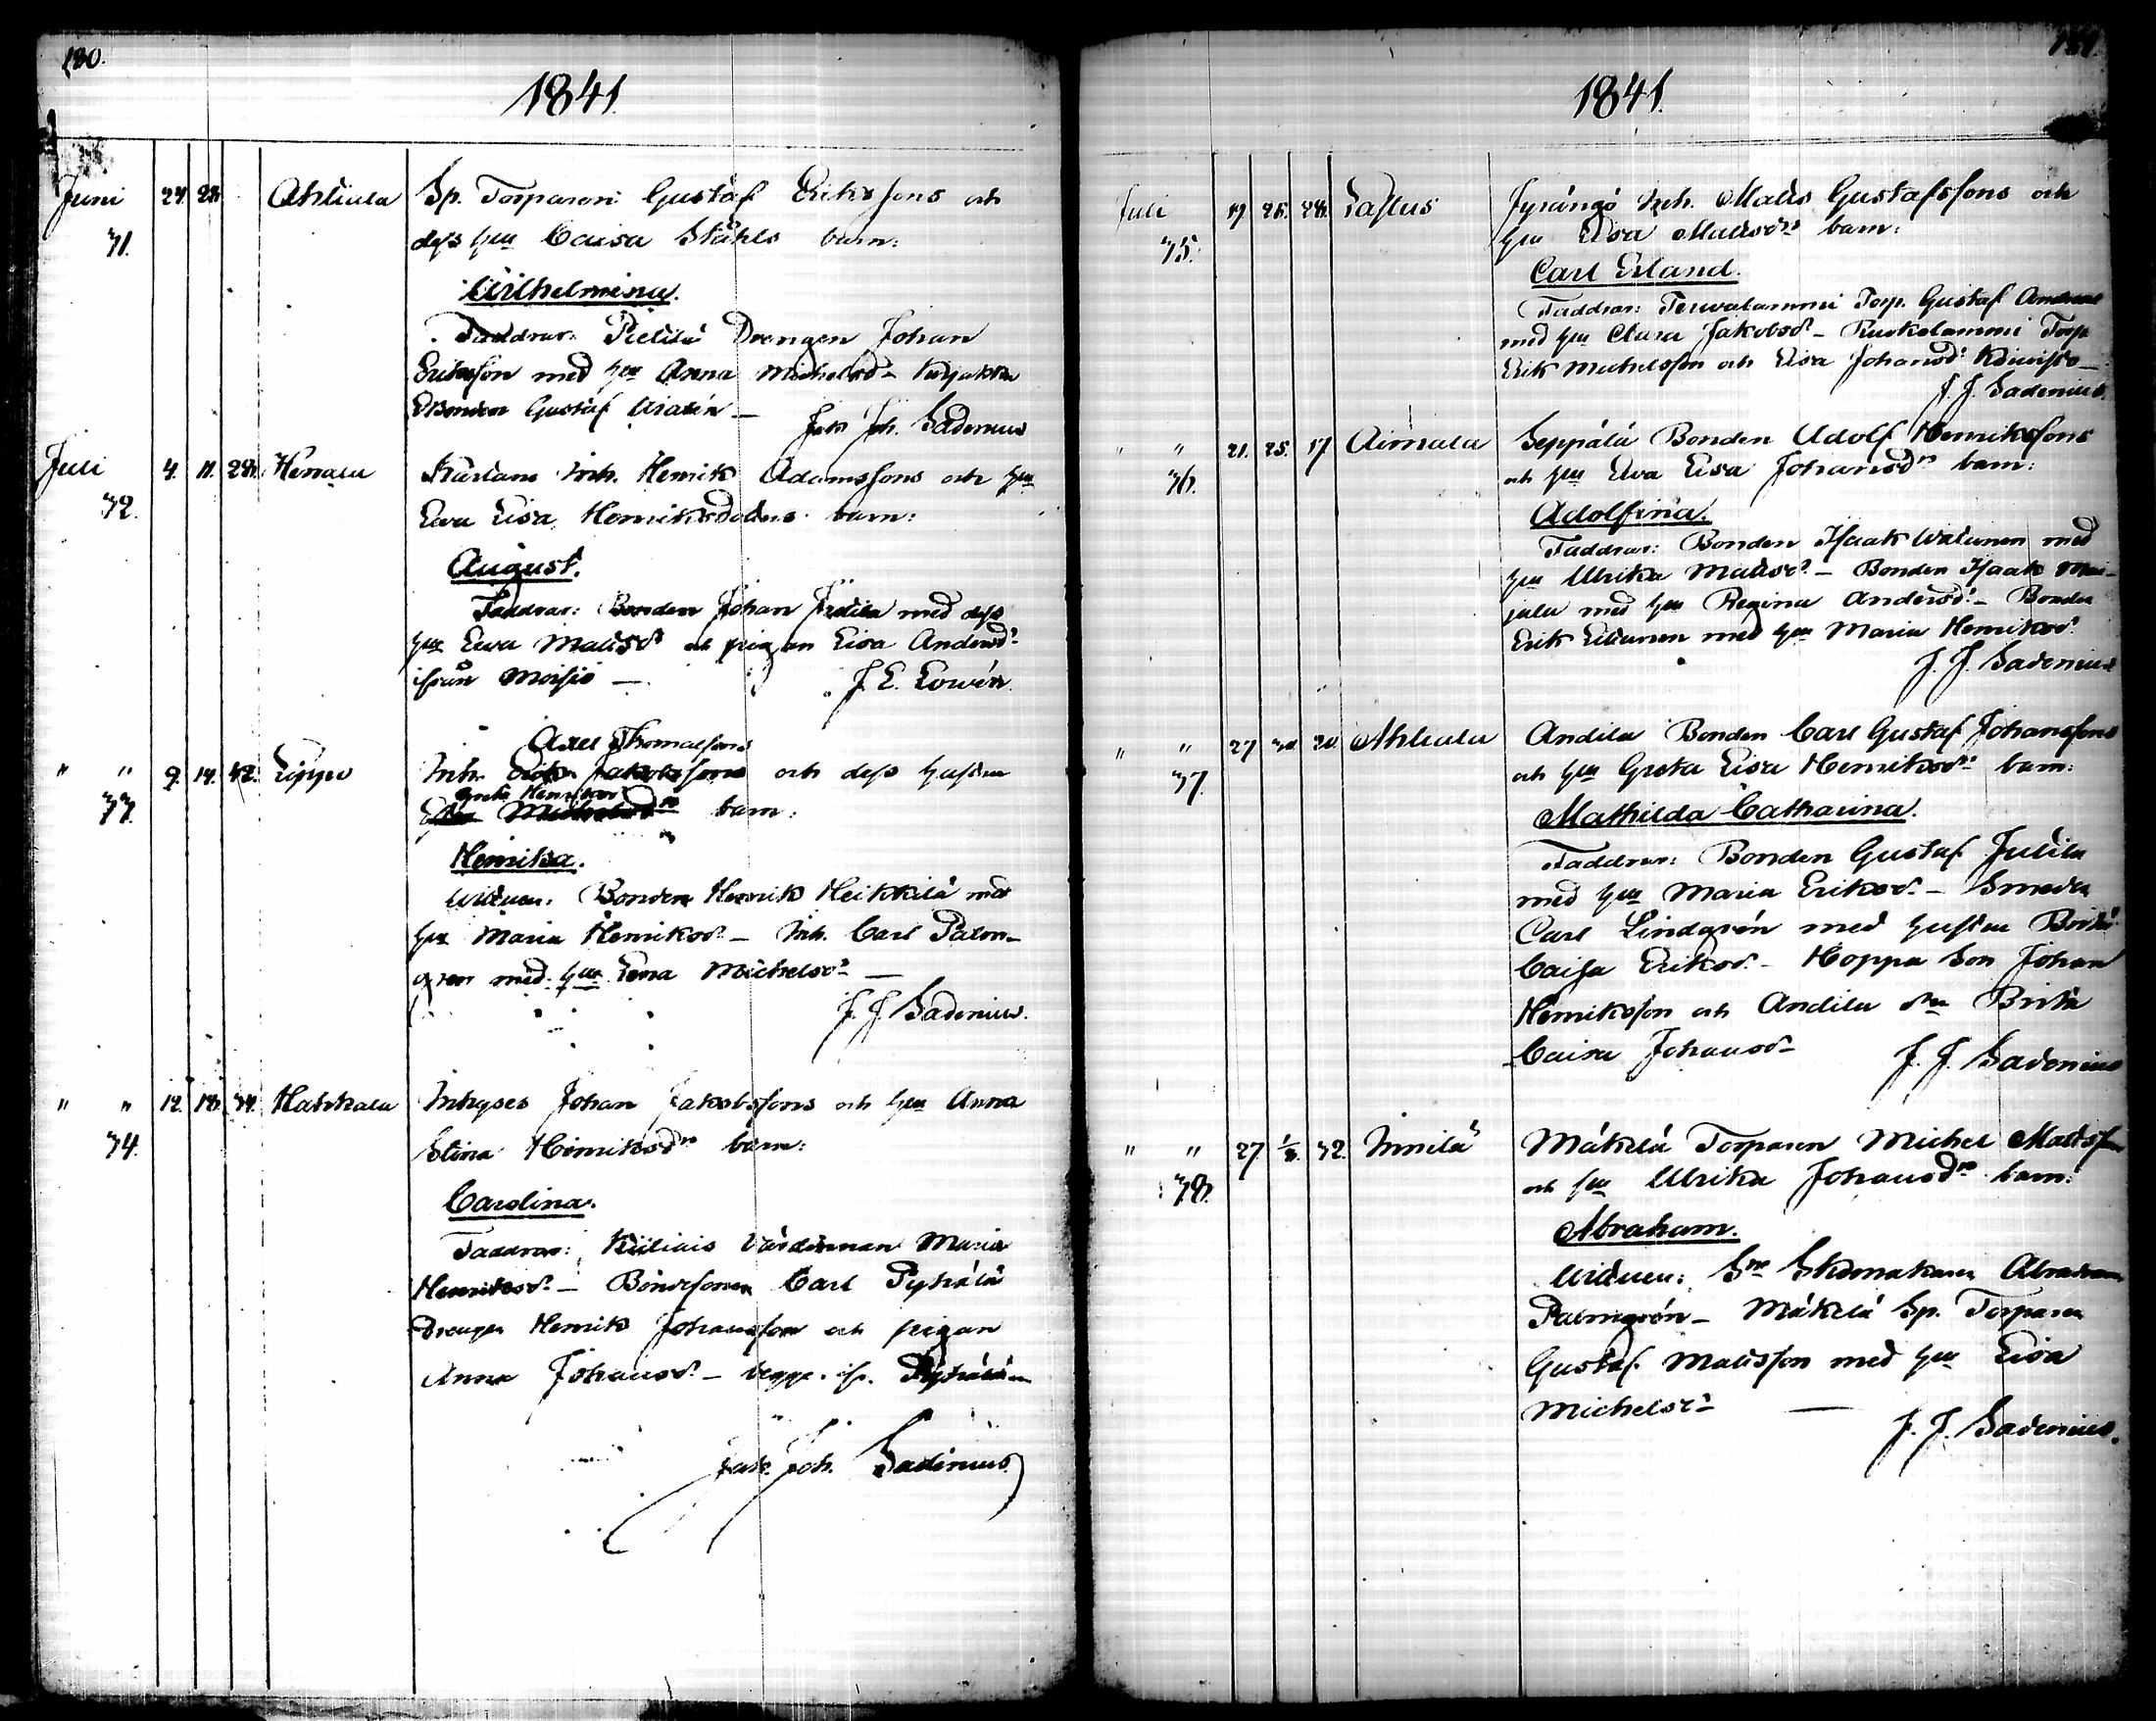 180.
1841.
Juni 24. 28. Ahtiala Sp. Torparen Gustaf Erikssons och
71. dess hu Caisa Ståhls barn:
Wilhelmina.
Faddrar: Pietilä Drengen Johan
Eriksson med hu Anna Michelsdr
EBonden Gustaf
Jak Joh. Sadenius
Juli 4. 11. 28. Hennala Inh. Henrik Adamssons och hu
72. Ewa Lisa Henriksdotters barn:
August.
Faddrar: Bonden Johan med dess
hu Ewa Matsdr och pigan Lisa Andersdr
ifrån Moisio —
J. E. Lowén.
Axel Thomassons
" " 9. 14. 42. Lippo Inh. och dess hustru
Greta Henriksdr
73. barn:
Henrika.
Witnen: Bonden Henrik Heikkilä med
hu Maria Henriksdr — Inh. Carl Palm-
gren med hu Lena Michelsdr —
J. J. Sadenius.
" " 12. 18. 34. Hatkala Inhyses Johan Jakobssons och hu Anna
74. Stina Henriksdrs barn:
Carolina.
Faddrar: Värdinnan Maria
Henriksdr — Bondesonen Carl Pyhälä
Drengen Henrik Johansson och pigan
Anna Johansdr — begge ifr. Pyhälä —
Jak. Joh. Sadenius
1841.
Juli 19. 25. 28. Pastus Jyrängö Inh. Matts Gustafssons och
75. hu Lisa Mattsdrs barn:
Carl Erland.
Faddrar: Terwalammi Torp. Gustaf Anders
med hu Clara Jakobsdr — Ruskelammi Torp
Erik Michelsson och Lisa Johansdr
J. J. Sadenius.
" " 21. 25. 17. Aimala Seppälä Bonden Adolf Henrikssons
76. och hu Ewa Lisa Johansdrs barn:
Adolfina.
Faddrar: Bonden Isaak med
hu Ulrika Mattsdr — Bonden Isaak Mar-
jula med hu Regina Andersdr — Bonden
Erik med hu Maria Henriksdr
J. J. Sadenius
" " 27. 30. 20. Ahtiala Andila Bonden Carl Gustaf Johanssons
77. och hu Greta Lisa Henriksdrs barn:
Mathilda Catharina.
Faddrar: Bonden Gustaf Jutila
med hu Maria Eriksdr — Smeden
Carl Lindgrén med hustru Brita
Caisa Eriksdr — Hoppa Son Johan
Henriksson och Andila dn Brita
Caisa Johansdr —
J. J. Sadenius
" " 27 1/8. 32. Innilä Mäkelä Torparen Michel Mattssons
78. och hu Ulrika Johansdrs barn:
Abraham.
Witnen: Sn Skomakaren Abraham
Palmgrén — Mäkelä Sp. Torparen
Gustaf Mattsson med hu Lisa
Michelsdr —
J. J. Sadenius.